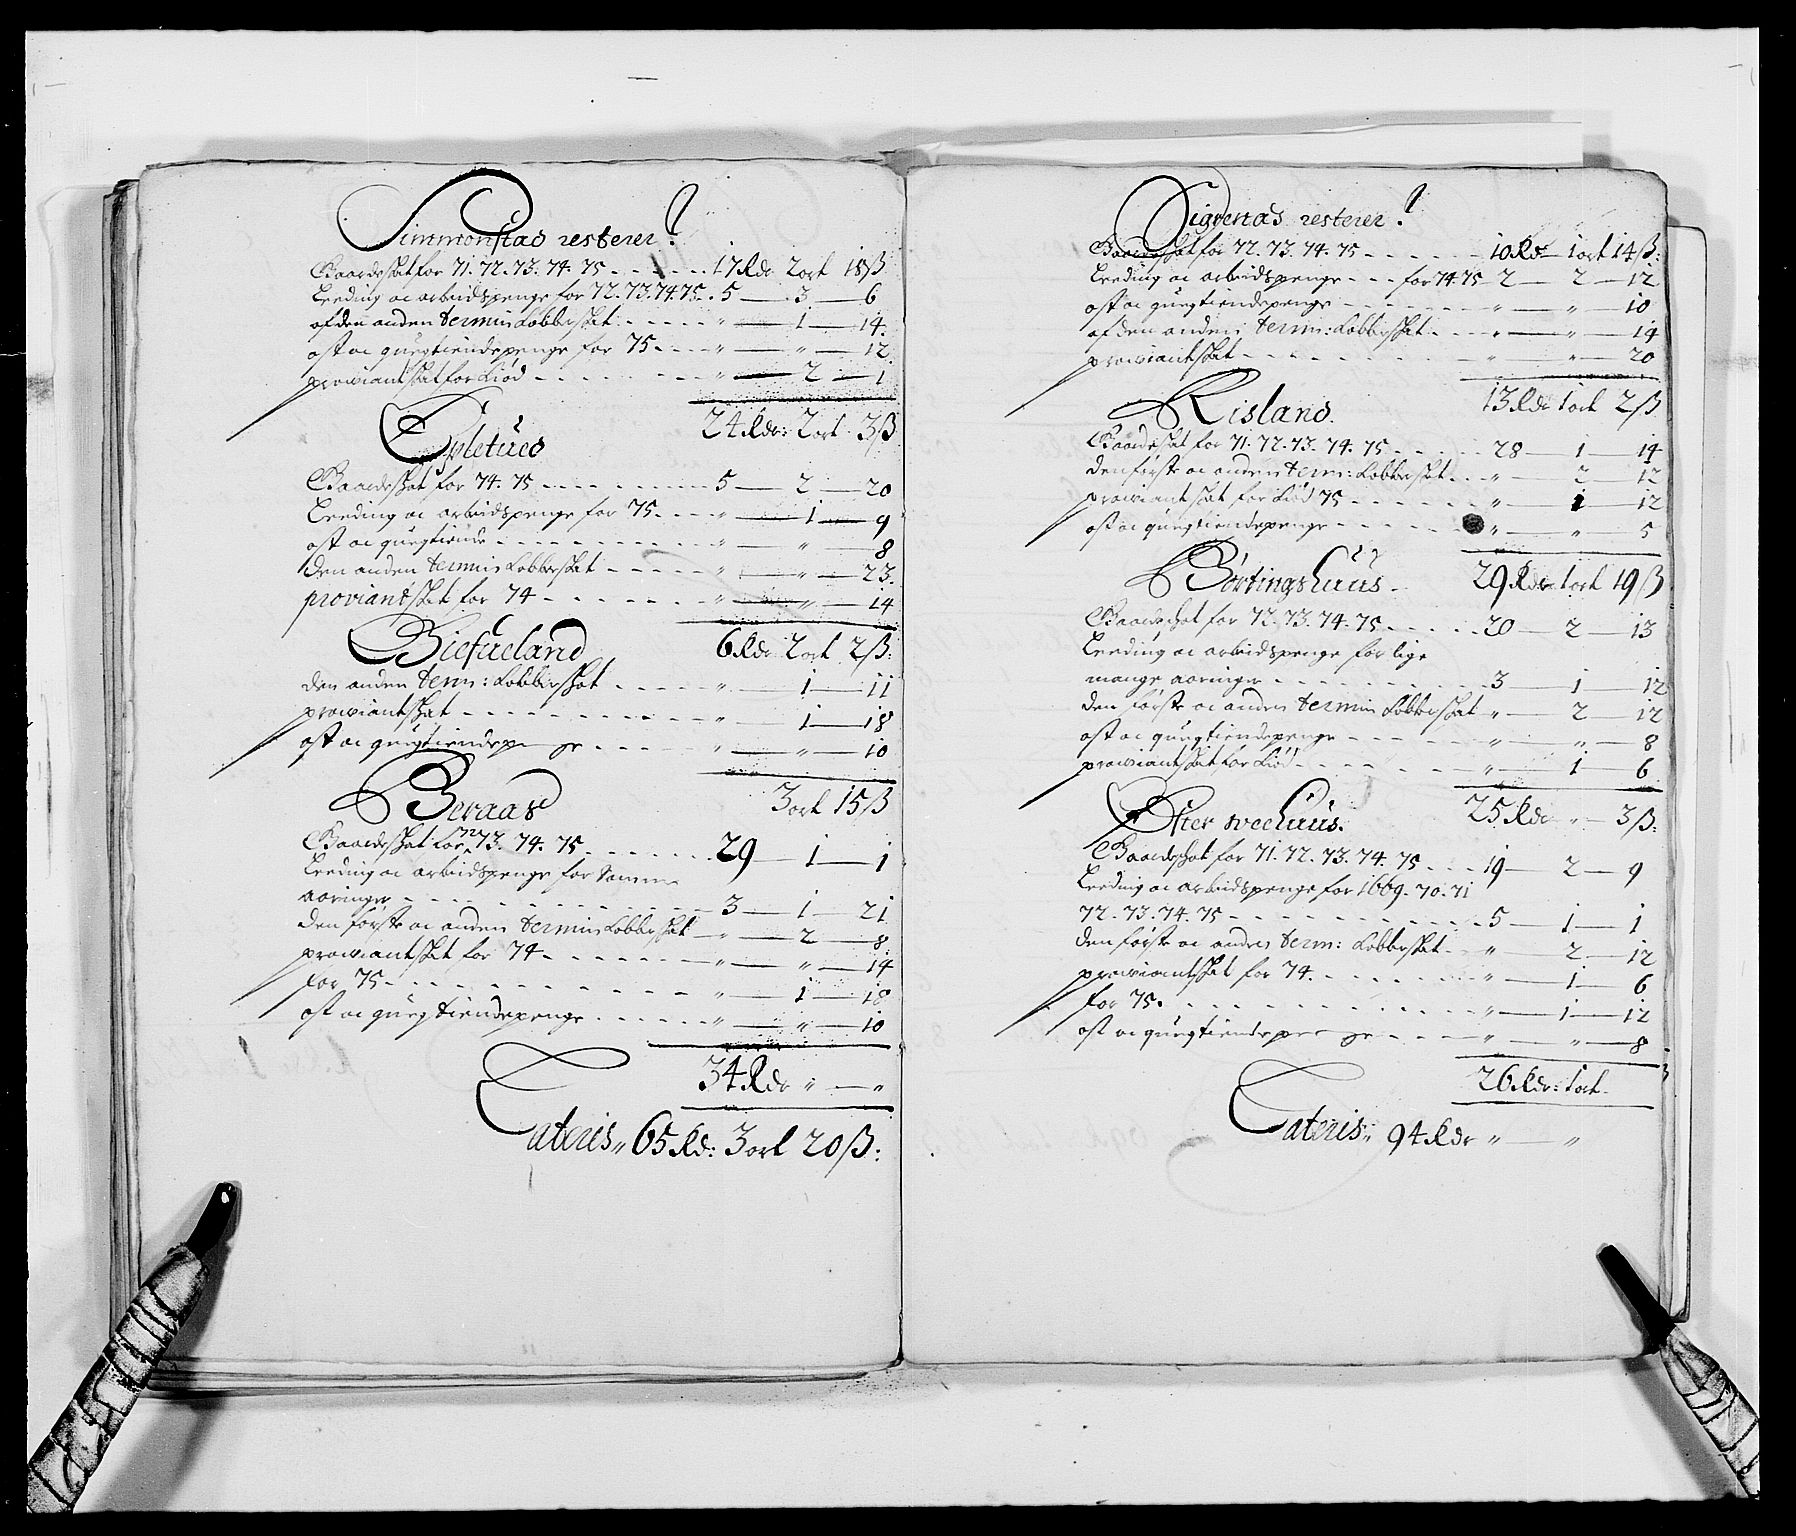 Simmonstad resterer
Gaardeskat for 71. 72. 73. 74. 75 - - - - - 17 Rdr 2 ort 18 ß
Leeding oc arbeidspenge for 72. 73. 74. 75. 5 — 3 — 6
af den anden termin Kobberskat - - - - - „ — 1 — 14.
ost oc quegtiendepenge for 75 - - - - „ — „ — 12
proviantskat for Kiød - - - - - - - „ — 2 — 1
24 Rdr: 2 ort. 3 ß
Epletued
Gaardeskat for 74. 75 - - - - - - - - 5 — 2 — 20
Leeding oc arbeidspenge for 75 - - - - „ — 1 — 9
ost oc quegtiende - - - - - - - - - „ — „ — 8
den anden termin Kobberskat - - - - - „ — „ — 23.
proviantskat for 74 - - - - - - - - „ — „ — 14
6 Rdr 2 ort 2 ß:
Biefueland
den anden term: Kobberskat - - - - - „ — 1 — 11
proviantskat - - - - - - - - - - - „ — 1 — 18
ost oc quegtiendepenge - - - - - „ — „ — 10
3 ort 15 ß
Beraas
Gaardeskat for 72 73. 74. 75 - - - - - - - 29 — 1 — 1
Leeding oc arbeidspenge for samme
aaringer - - - - - - - - - - - - 3 — 1 — 21
den første oc anden termin Kobberskat - „ — 2 — 8
proviantskat for 74 - - - - - - - - „ — „ — 14
for 75 - - - - - - - - - - - - „ — 1 — 18
ost oc quegtiendepenge - - - - - - „ — „ — 10
34 Rdr „ — „
Lateris „ 65 Rd: 3 ort 20 ß:
Sigdenas resterer
Gaardeskat for 72. 73. 74. 75 - - - - - - 10 Rdr 1 ort 14 ß:
Leeding oc arbeidspenge - - - for 74 75 - 2 — 2 — 12
ost oc quegtiendepenge - - - - - - - „ — „ — 10
af den anden term: Kobberskat - - - „ — „ — 14
proviantskat - - - - - - - - - - „ „ — 20
13 Rdr 1 ort 2 ß
Risland.
Gaardeskat for 71. 72. 73. 74. 75 - - - - - 28 — 1 — 14
den første oc anden term: Kobberskat - - „ — 2 — 12
proviantskat for Kiød 75 - - - - - - - „ — 1 — 12
ost oc quegtiendepenge - - - - - - - „ — „ — 5
29 Rdr 1 ort 19 ß
Børtingshuus.
Gaardeskat for 72. 73. 74. 75 - - - - - 20 — 2 — 13
Leeding oc arbeidspenge for lige
mange aaringer - - - - - - - - - - 3 — 1 — 12
den første oc anden termin Kobberskat „ — 2 — 12
ost oc quegtiendepenge - - - - - - „ — „ — 8
proviantskat for Kiød - - - - - - - „ — 1 — 6
25 Rdr „ — 3 ß:
Øster weehuus.
Gaardeskat for 71. 72. 73. 74. 75 - - - 19 — 2 — 9
Leeding oc arbeidspenge for 1669. 70. 71
72. 73. 74. 75 - - - - - - - - - - 5 — 1 — 1
den første oc anden term: Kobberskat - „ — 2 — 12
proviantskat for 74. - - - - - - - „ — 1 — 6
for 75. - - - - - - - - - - - - „ — 1 — 12
ost oc quegtiendepenge - - - - „ — „ — 8
26 Rdr: 1 ort -
Lateris „ 94 Rdr „ — „